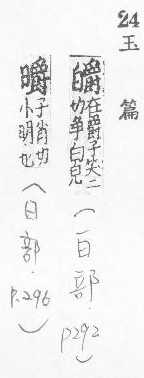 24
玉篇
皭 在爵子笑二
切爭白皃
(白部.
p292)
子肖切
卜明也
(日部.
p.296)